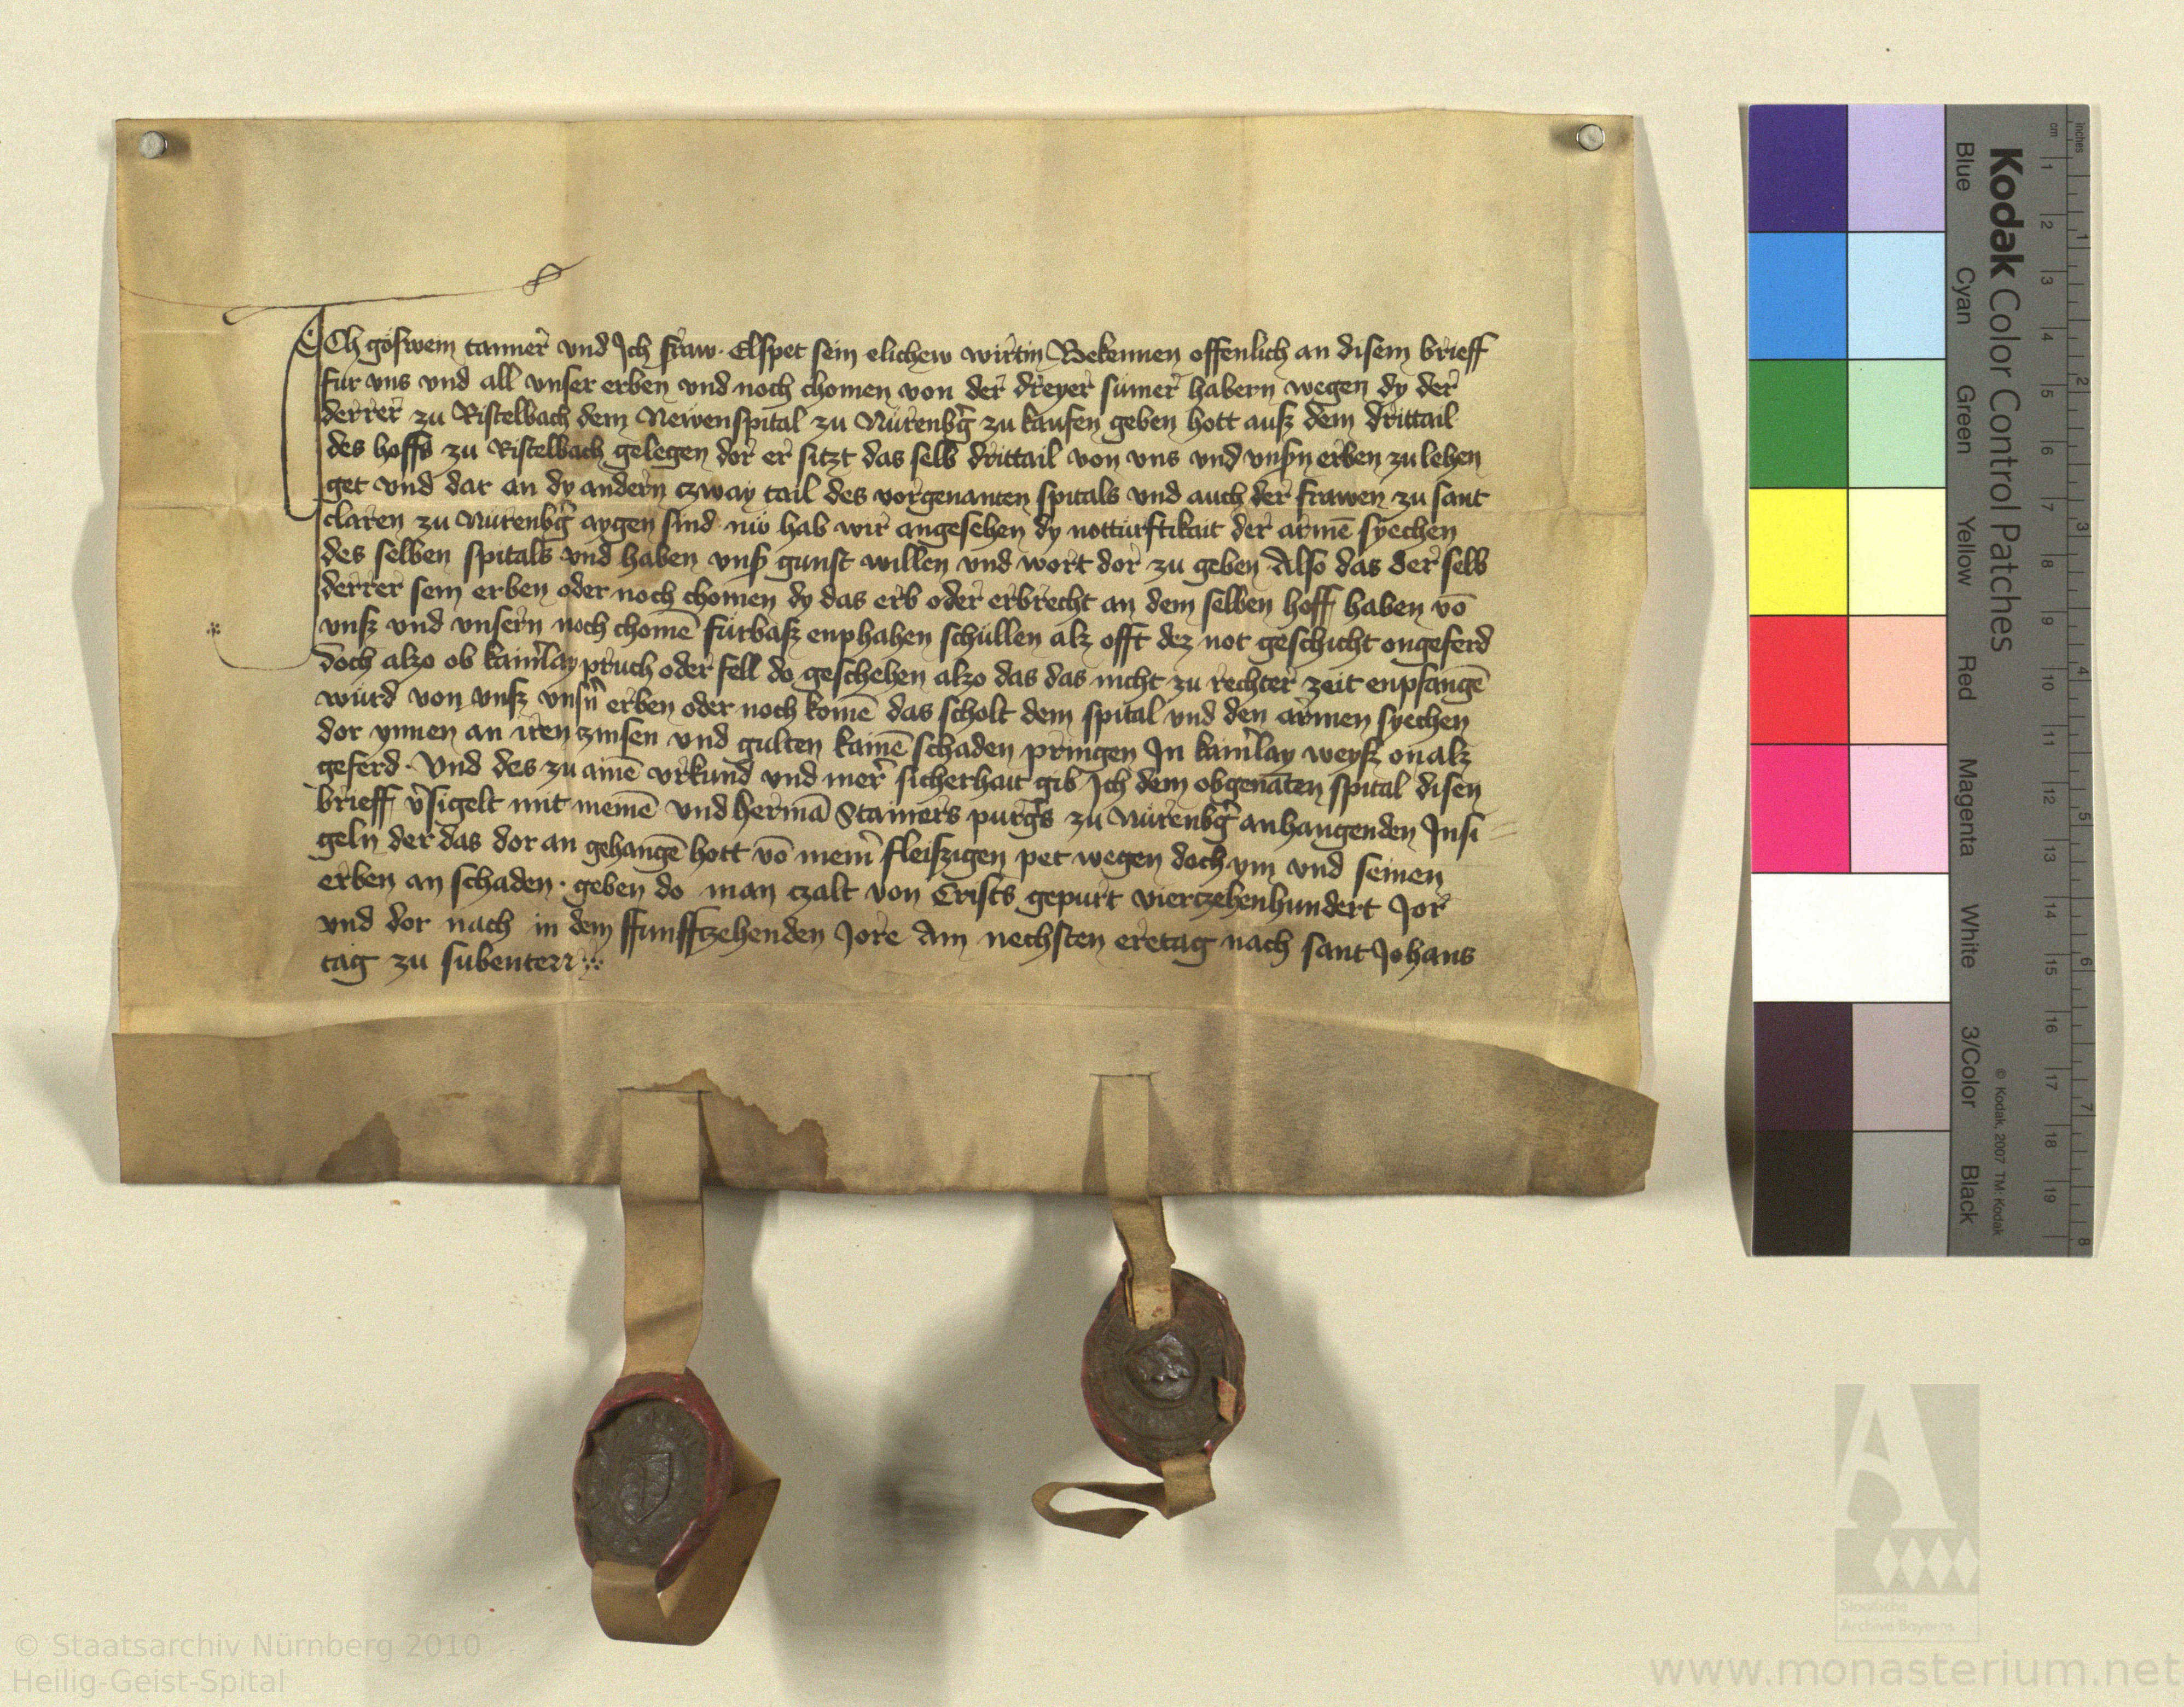 ICh goswein tanner vnd Ich fraw Elspet sein elichew wirtin Bekennen offenlich an disem brieff
fur vns vnd all vnser erben vnd noch chomen von der dreyer sümer habern wegen dy der
derrer zu Ristelbach dem Newenspital zu Nürenbg̃ zu kaufen geben hott auß dem drittail
des hoffs zu Ristelbach gelegen dor er sitzt das selb drittail von vns vnd vnsn̄ erben zu lehen
get vnd dar an dy andern czway tail des vorgenanten spitals vnd auch der frawen zu sant
claren zu Nürenbg̃ aygen sind nw hab wir angesehen dy notturftikait der armē syechen
des selben spitals vnd haben vnß gunst willen vnd wort dor zu geben Also das der selb
derrer sein erben oder noch chomen dy das erb oder erbrecht an dem selben hoff haben vō
vnß vnd vnsern noch chomē fürbaß enphahen schüllen alz offt dez not geschicht ongeferd
doch alzo ob kainr̄lay pruch oder fell do geschehen alzo das das nicht zu rechter zeit enpfangē
würd von vnß vnsn̄ erben oder noch komē das scholt dem spital vnd den armen syechen
dor ynnen an iren zinsen vnd gulten kainē schaden pringen In kainr̄lay weyß on alz
geferd · Vnd des zu ainē vrkund vnd mer sicherhait gib Ich dem obgenāten spital disen
brieff v̄sigelt mit meinē vnd hermā Stainers purg̃s zu Nürenbg̃ anhangenden Insi
geln der das dor an gehangē hott vō meinr̄ fleißigen pet wegen doch ym vnd seinen
erben an schaden · geben do man czalt von Crists gepurt vierczehenhundert Jor
vnd dor nach in dem ffunfftzehenden Jore Am nechsten eretag nach sant Johans
tag zu subenten
Kodak Color Control Patches
Blue Cyan Green Yellow Red Magenta White 3/Color Black
© Kodak, 2007 TM: Kodak
cm 1 2 3 4 5 6 7 8 9 10 11 12 13 14 15 16 17 18 19
inches 1 2 3 4 5 6 7 8
© Staatsarchiv Nürnberg 2010
Heilig-Geist-Spital
Staatliche
Archive Bayerns
www.monasterium.net